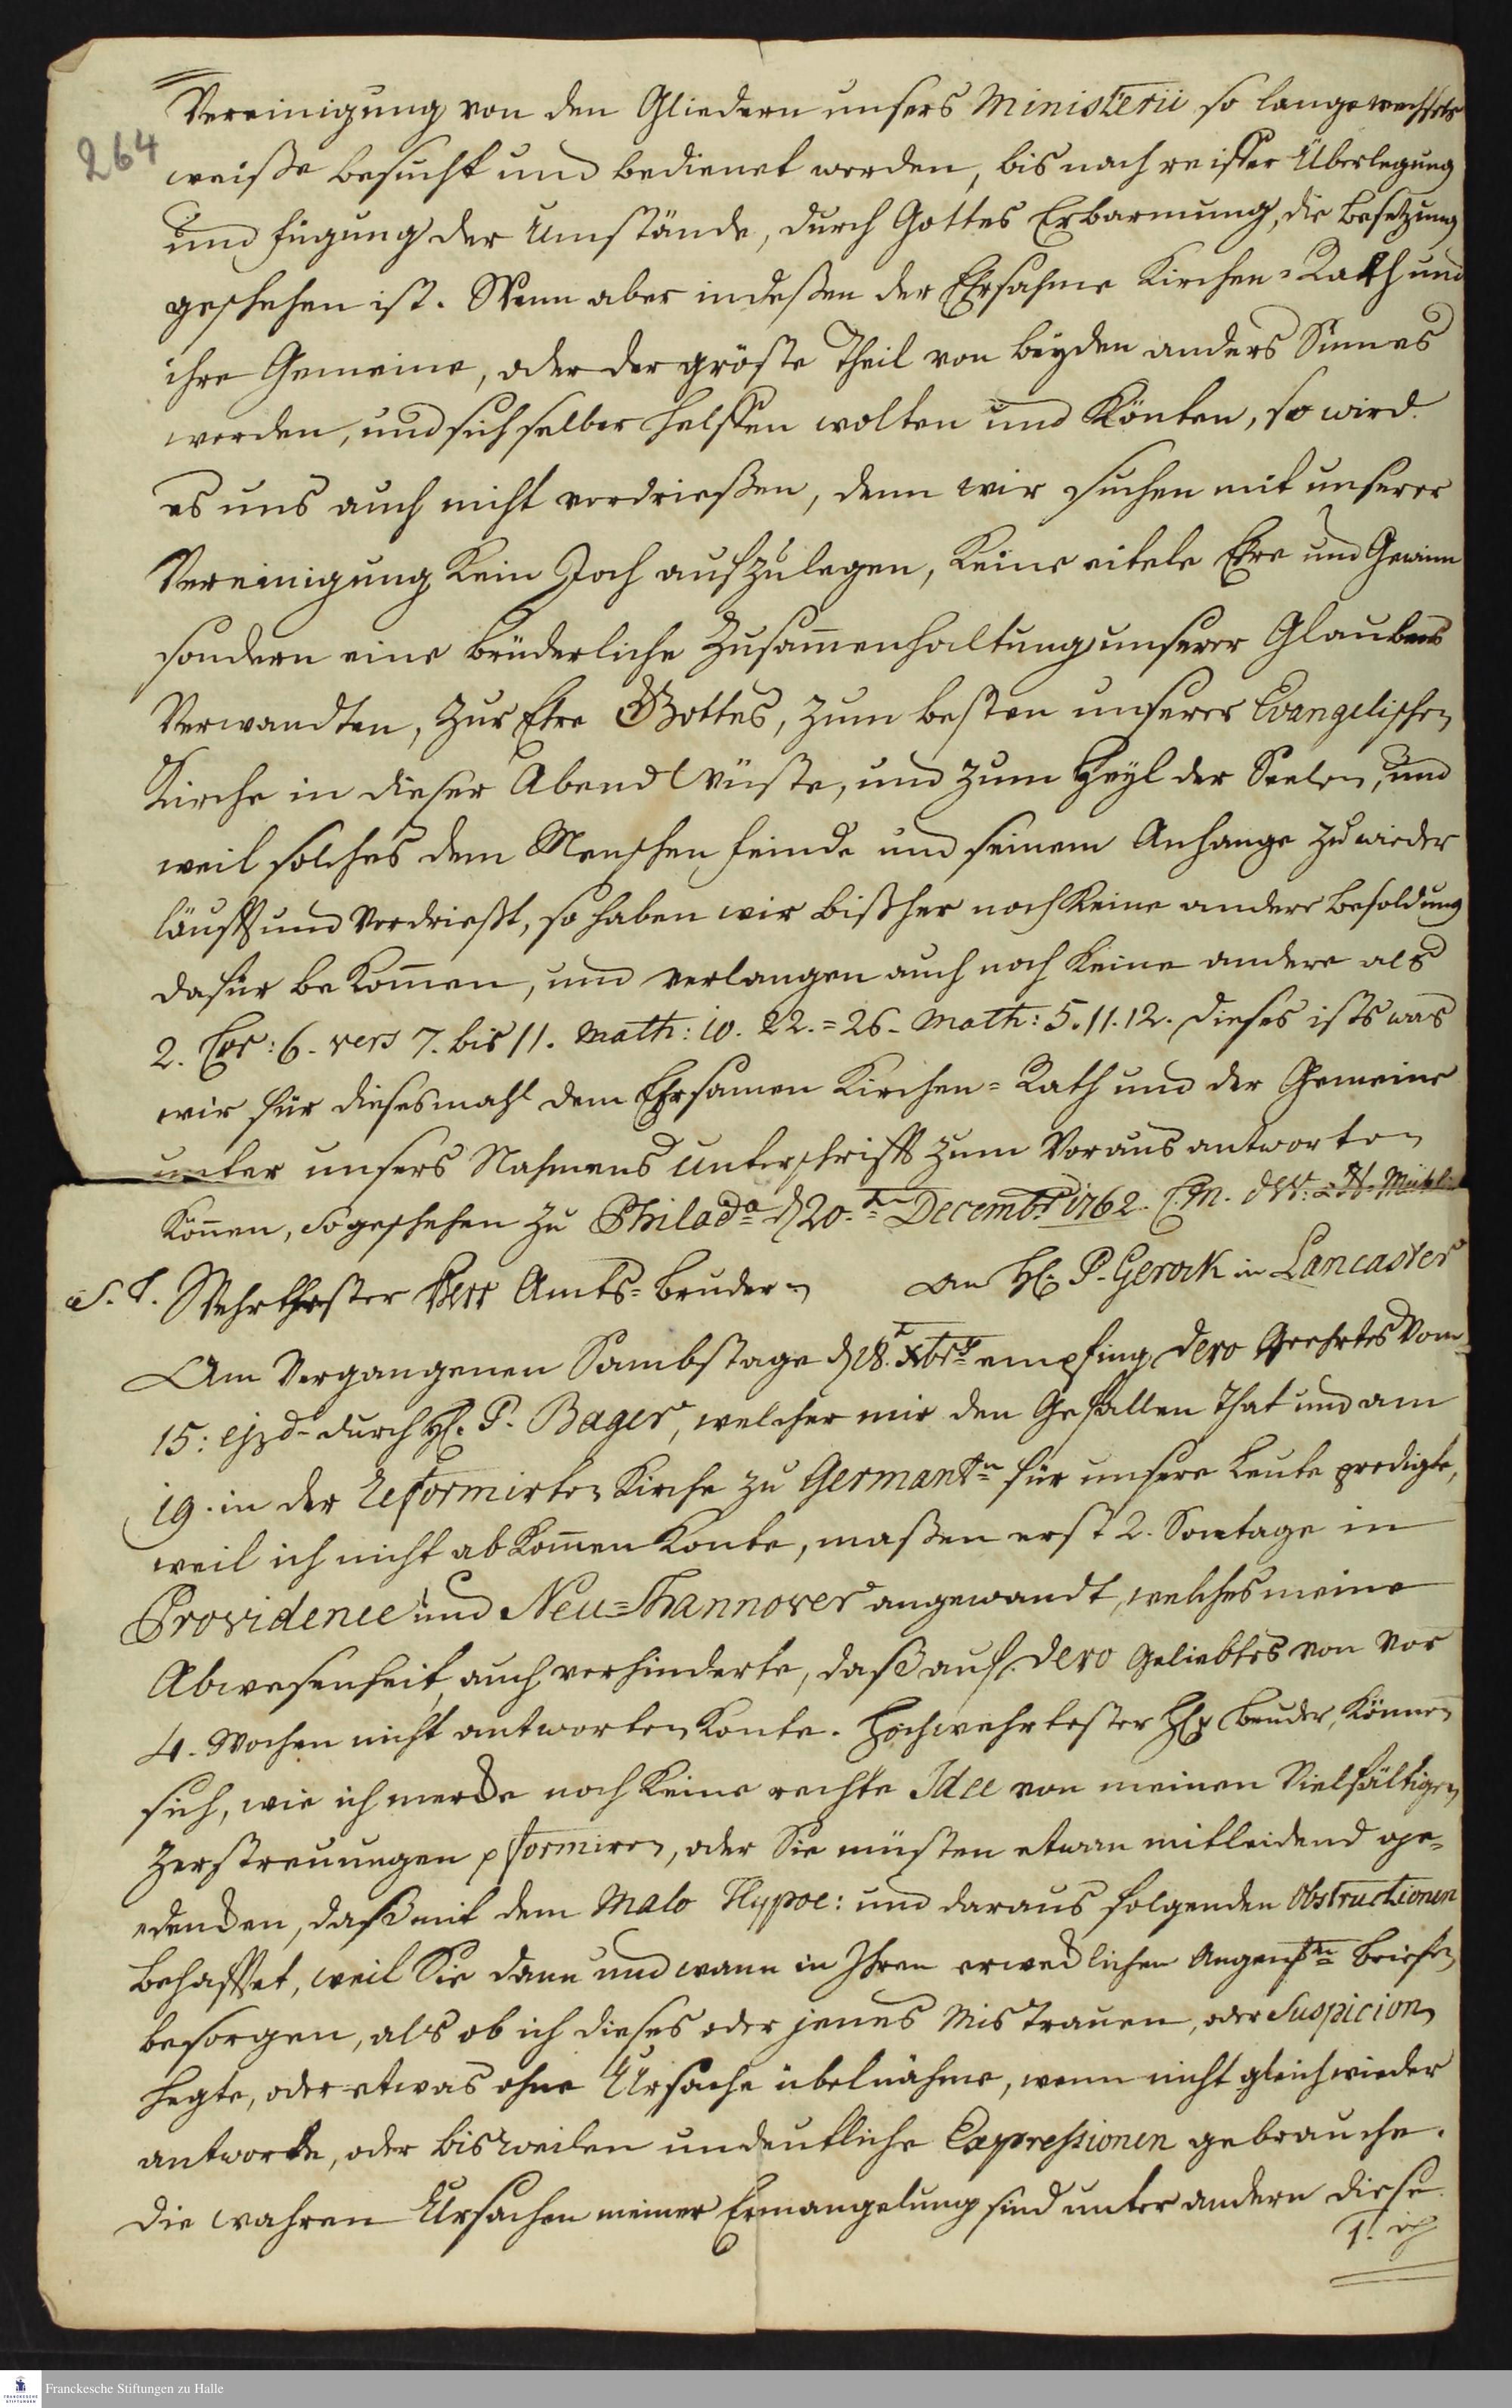 264
Vereinigung von den Gliedern unsers Ministerii so lange wechsels
weiße besucht und bedienet werden, bis nach reiffer Überlegung
und fügung der Umstände, durch Gottes Erbarmung, die besetzung
geschehen ist. Wenn aber indeßen der Ehrsahme Kirchen-Rath und
ihre Gemeine, oder der gröste Theil von beyden anders Sinnes
werden, und sich selber helffen wolten und Könten, so wird
es uns auch nicht verdrießen, denn wir suchen mit unserer
Vereinigung Kein Joch aufzulegen, Keine eitele Ehre und Gewinn
sondern eine brüderliche Zusam̄enhaltung unserer Glaubens
Verwandten, zur Ehre Gottes, zum besten unserer Evangelischen
Kirche in dieser Abend Wüste, und zum Heyl der Seelen, und
weil solches dem Menschen feinde und seinem Anhange zu wieder
läufft und Verdrießt, so haben wir bißher noch Keine andere besoldung
dafür bekom̄en, und verlangen auch noch Keine andere als
2. Cor: 6. vers 7. bis 11. Math: 10. 22.=26. Math: 5. 11. 12. dieses ists was
wir für diesesmahl dem Ehrsamen Kirchen=Rath und der Gemeine
unter unsers Nahmens Unterschrifft zum Voraus antworten
Kön̄en, so geschehen zu Philada d 20. ten Decembr 1762. C. M. W: H. Mühl
S. T. Wehrthester Herr Amts=bruder. an H. P. Gerock in Lancaster
Am Vergangenen Sambstage d 18. Xbr empfing dero Geehrtes Vom
15: ejusd. durch H. P. Bager, welcher mir den Gefallen that und am
19. in der Reformirten Kirche zu Germantn für unsere Leute predigte,
weil ich nicht ab Kom̄en Konte, maßen erst 2. Sontage in
Providence und Neu=Hannover angewandt, welches meine
Abwesenheit, auch verhinderte, daß auf dero Geliebtes von Vor
4. Wochen nicht antworten Konte. Hochwehrtester H. bruder, Können
sich, wie ich mercke noch Keine rechte Idee von meinen Vielfältigen
Zerstreuungen formiren, oder Sie müsten etwan mitleidend ge=
dencken, daß mit dem Malo Hypoc: und daraus folgenden Obstructionen
behafftet, weil Sie dann und wann in Ihren Briefen
besorgen, als ob ich dieses oder jenes Mistrauen, oder Suspicion
hegte, oder etwas ohne Ursache übelnähme, wenn nicht gleich wieder
antworte, oder bisweilen undeutliche Expressionen gebrauche.
Die wahren Ursachen meiner Ermangelung sind unter andern diese
1. ich
Franckesche Stiftungen zu Halle